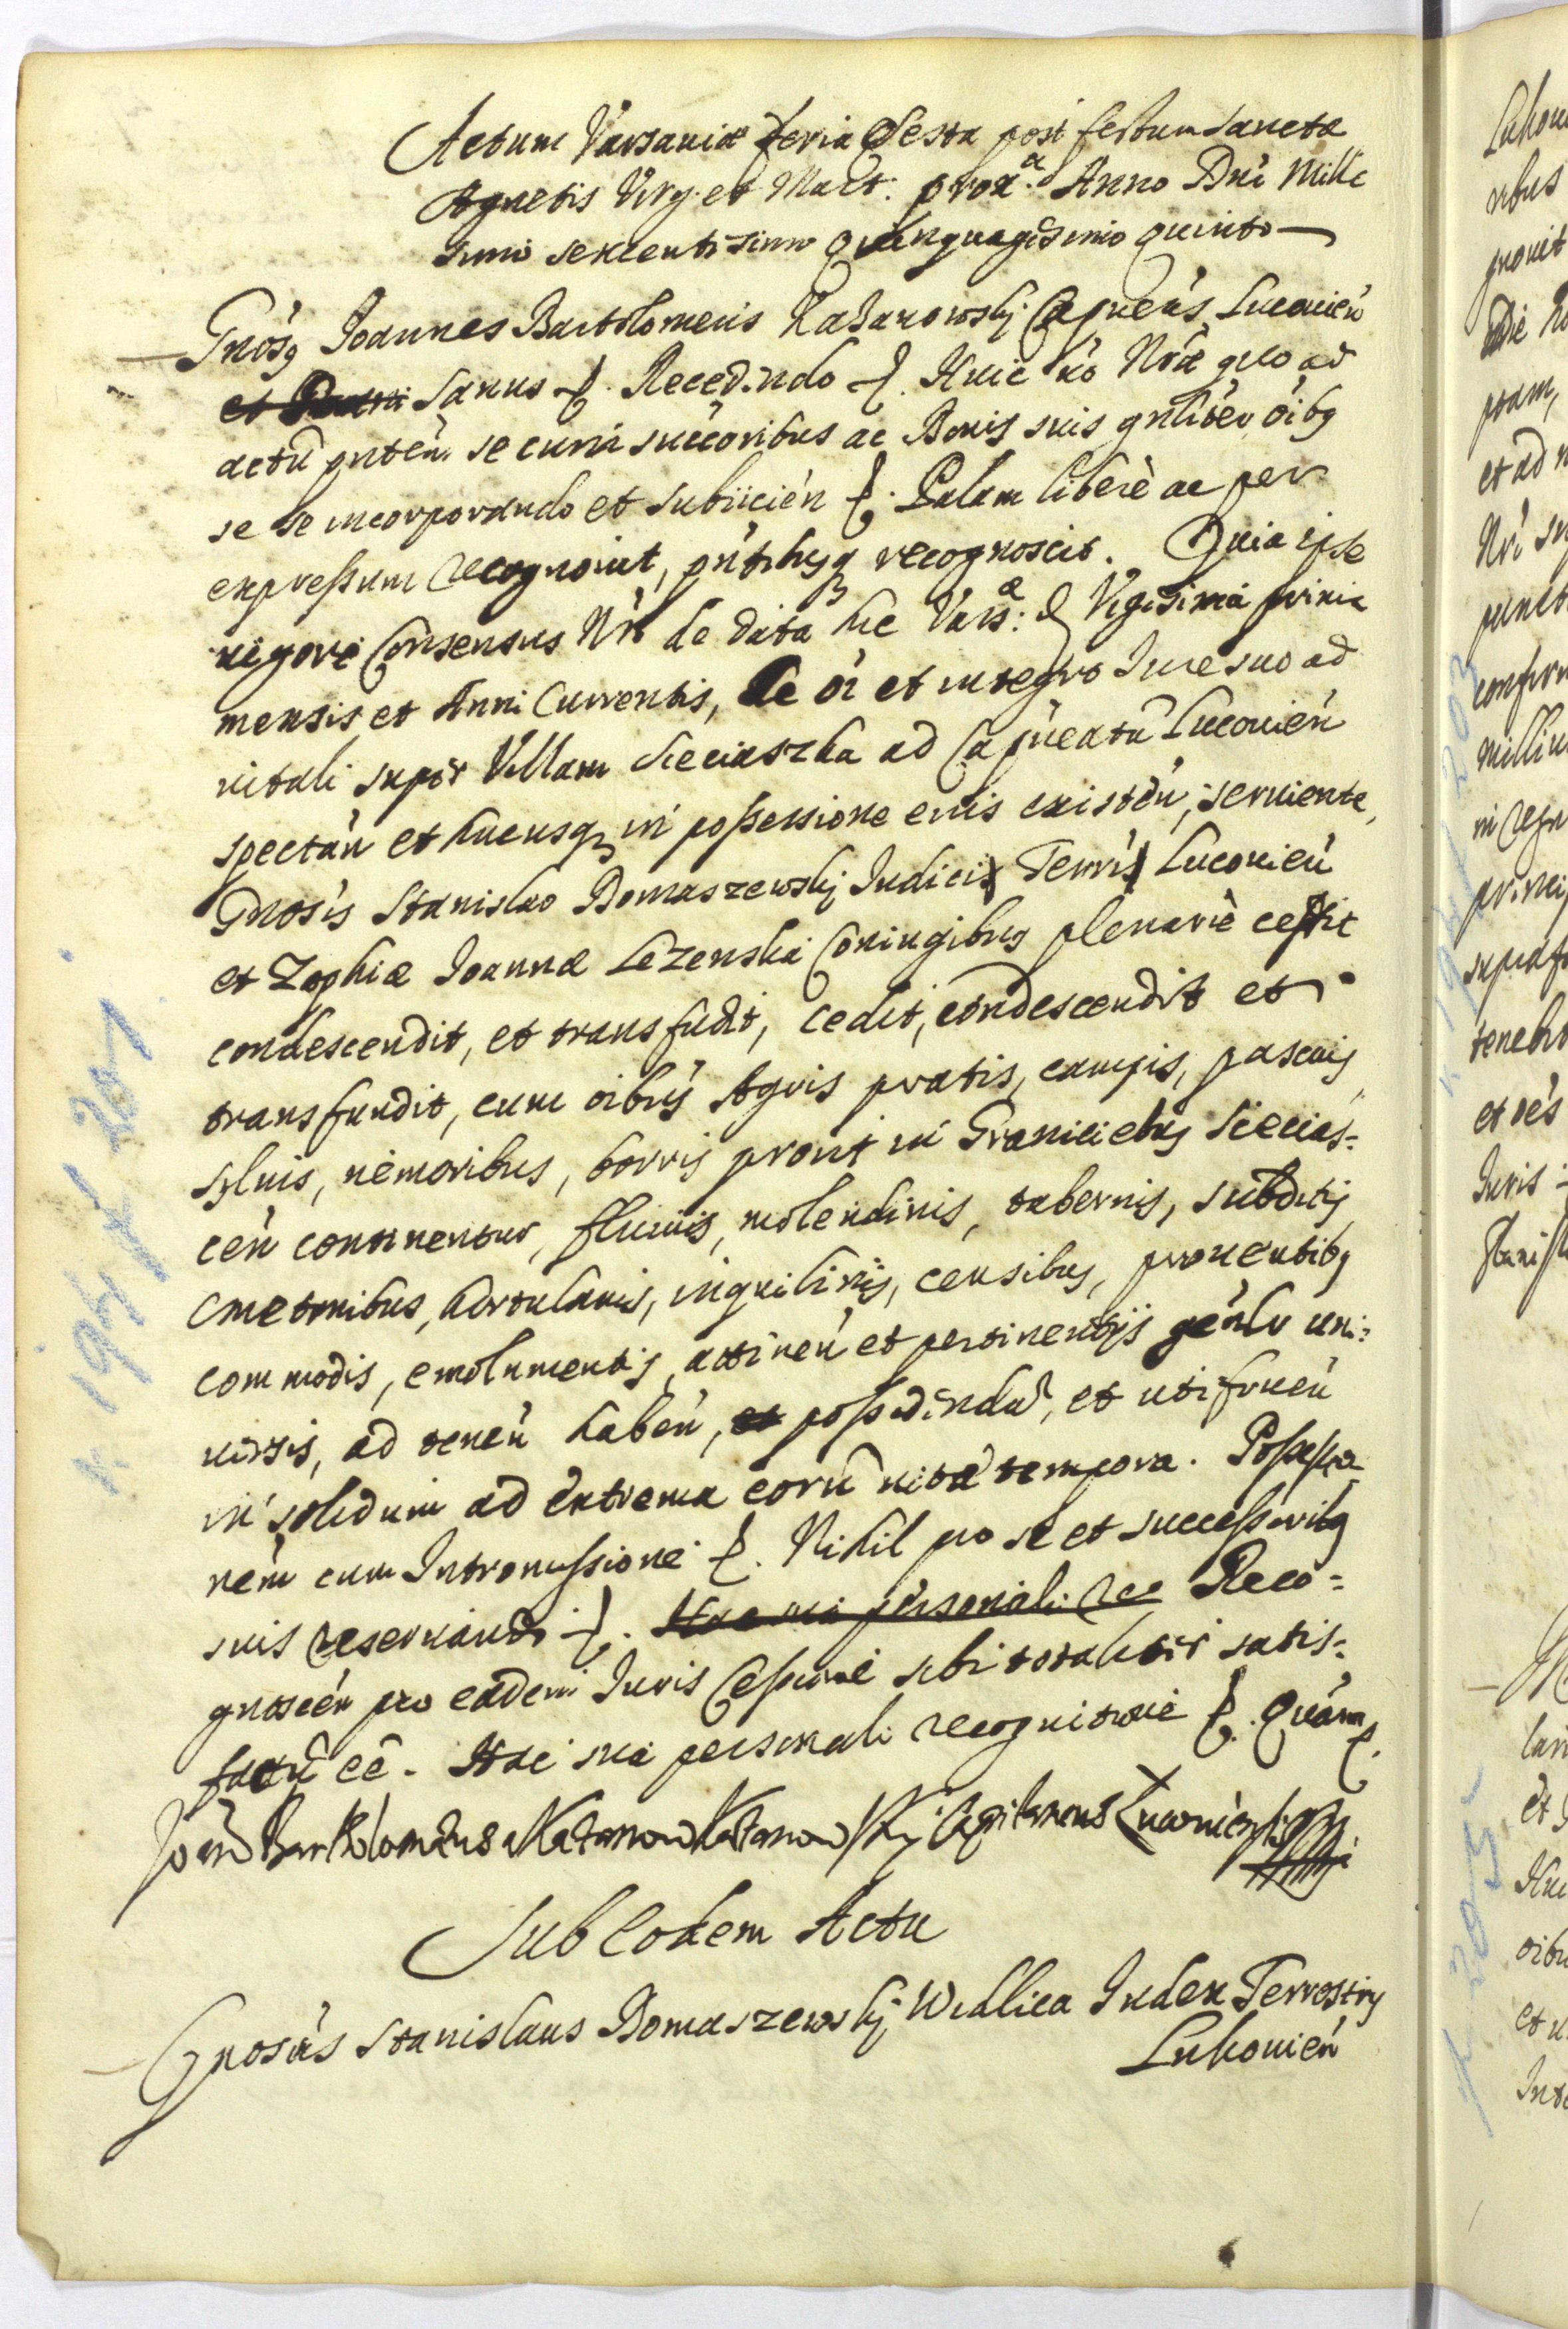 Actum Varsaviæ feria sexta post festum Sanctæ
Agnetis Virg. et Mart. prox.ª Anno Dni Mille
simo sexcentesimo quinquagesimo quinto
Gnosq Joannes Bartolomeus Kazanowskj Capneús Lucouień
et sanus ƺ. Recedendo ƺ. Huic úo Nrǽ quo ad
actū pnteń se cum successoribus ac Bonis suis gnliter oibq
se se incorporando et subiicień ƺ. Palam liberè ac per
expressum recognouit, pntibusq recognoscit. Quia ipse
uigore Consensus Nri de data hic Vars:æ d Vigesima prima
mensis et Anni Currentis, de oi et integro Jure suo ad
uitali super Villam Sieciaszka ad Capneatū Lucouień
spectań et hucusq in possessione eius existeń, seruiente,
Gnosis Stanislao Domaszewskj Judici Terris Lucouień
et Zophiæ Joannæ Lezenska Coniugibus plenariè cessit
condescendit, et transfudit, cedit, condescendit et
transfundit, cum oibus Agris pratis, campis, pascuis,
syluis, nemoribus, borris prout in Graniciebus Siecias=
ceń continentur, fluuiis, molendinis, tabernis, subditis
Cmetonibus, hortulanis, inquilinis, censibus, prouentibq
commodis, emolumentis, attineń et pertinentijs genlr uni=
uersis, ad teneń habeń, et possidendū, et utifrueń
in solidum ad extrema eorū uitæ tempora. Possessio
nem cum Intromissione ƺ. Nihil pro se et successoribq
suis reseruando ƺ. Hac sua personali rec Reco=
gnosceń pro eadem Juris Cessione sibi totaliter satis=
factū eē. Hac sua personali recognitione ƺ. Quam ƺ.
Joan Bartholomeus Kazanowskj Capitaneus Lucouiensis
Sub Eodem Actu
Gnosus Stanislaus Domaszewskj Wedlica Judex Terrestris
Lukouień
k 194 k 201